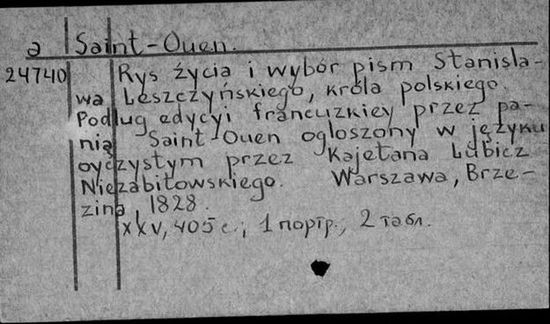 a Saint-Ouen.
24740 Rys życia i wybór pism Stanisła-
wa Leszczyńskiego, króla polskiego.
Podług edycyi francuzkiey przez pa-
nią Saint-Ouen ogłoszony w języku
oyczystym przez Kajetana Lubicz
Niezabitowskiego. Warszawa, Brze-
zina, 1828.
XXV, 405 с., 1 портр., 2 табл.